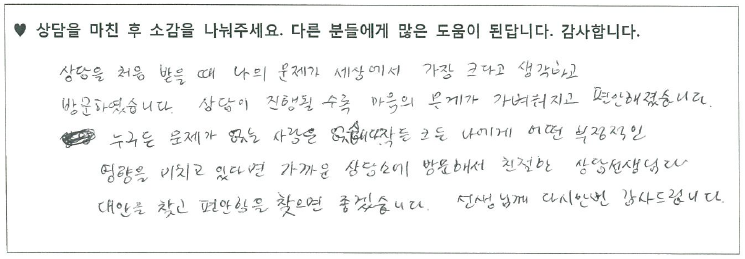 ♥ 상담을 마친 후 소감을 나눠주세요. 다른 분들에게 많은 도움이 된답니다. 감사합니다.
상담을 처음 받을 때 나의 문제가 세상에서 가장 크다고 생각하고
방문하였습니다. 상담이 진행될 수록 마음의 무게가 가벼워지고 편안해졌습니다.
누구든 문제가 없는 사람은 작든 크든 나에게 어떤 부정적인
영향을 미치고 있다면 가까운 상담소에 방문해서 친절한 상담선생님과
대안을 찾고 편안함을 찾으면 좋겠습니다. 선생님께 다시한번 감사드립니다.